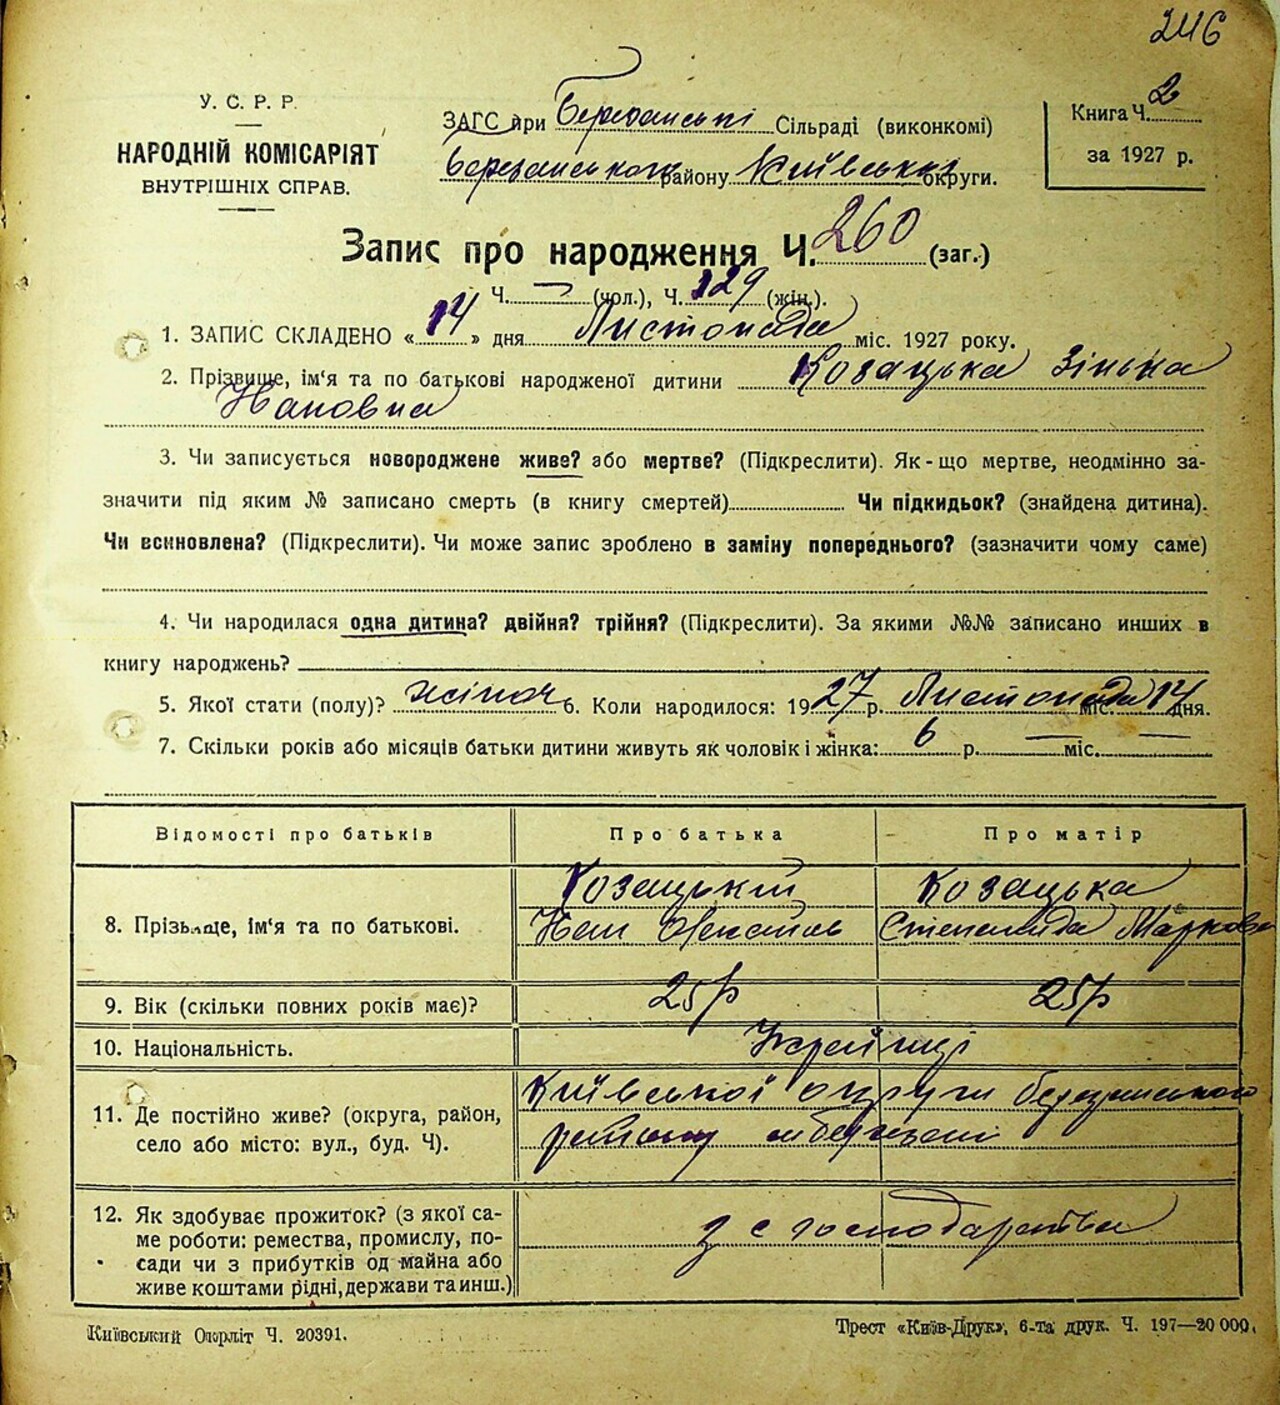 246
У. С. Р. Р.
НАРОДНІЙ КОМІСАРІЯТ
ВНУТРІШНІХ СПРАВ.
ЗАГС при Березанські Сільраді (виконкомі)
Березанського району Київської округи.
Книга Ч. 2
за 1927 р.
Запис про народження Ч. 260 (заг.)
Ч. — (чол.), Ч. 129 (жін.).
1. ЗАПИС СКЛАДЕНО « 14 » дня Листопада міс. 1927 року.
2. Прізвище, ім‘я та по батькові народженої дитини Козацька Зінька
3. Чи записується новороджене живе? або мертве? (Підкреслити). Як-що мертве, неодмінно за-
значити під яким № записано смерть (в книгу смертей) Чи підкидьок? (знайдена дитина).
Чи всиновлена? (Підкреслити). Чи може запис зроблено в заміну попереднього? (зазначити чому саме)
4. Чи народилася одна дитина? двійня? трійня? (Підкреслити). За якими №№ записано инших в
книгу народжень?
5. Якої стати (полу)? жіноч 6. Коли народилося: 1927 р. Листопада міс. 14 дня.
7. Скільки років або місяців батьки дитини живуть як чоловік і жінка: 6 р. — міс. —
Відомості про батьків Про батька Про матір
Козацький Козацька
8. Прізвище, ім‘я та по батькові. Марков
9. Вік (скільки повних років має)? 25 р 25 р
10. Національність. Українці
11. Де постійно живе? (округа, район,
село або місто: вул., буд. Ч).
Київської округи Березанського
району м Березані
12. Як здобуває прожиток? (з якої са-
ме роботи: ремества, промислу, по-
сади чи з прибутків од майна або
живе коштами рідні, держави та инш.)
з с господарства
Київський Окрліт Ч. 20391.
Трест «Київ-Друк», 6-та друк. Ч. 197—20 000.